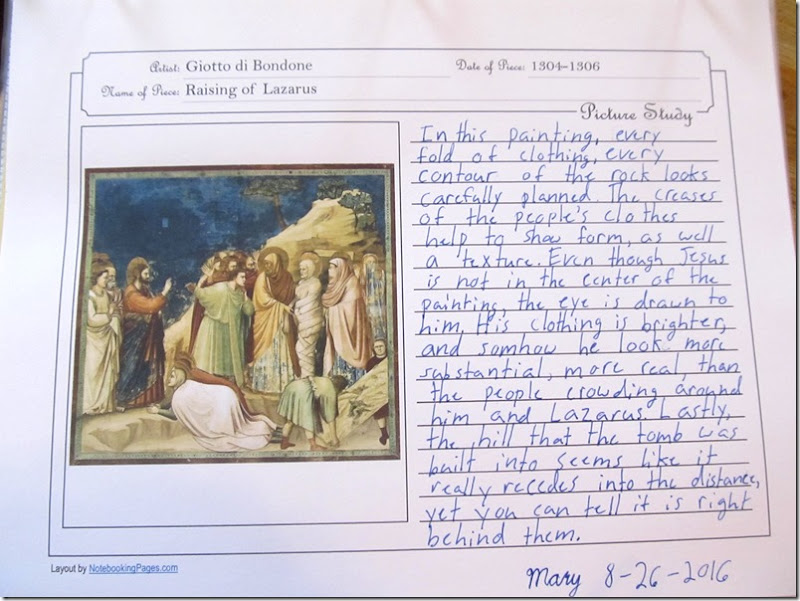 Artist: Giotto di Bondone
Date of Piece: 1304–1306
Name of Piece: Raising of Lazarus
Picture Study
In this painting, every
fold of clothing, every
contour of the rock looks
carefully planned. The creases
of the people's clothes
help to show form, as well
a texture. Even though Jesus
is not in the center of the
painting, the eye is drawn to
him. His clothing is brighter,
and somhow he look more
substantial, more real, than
the people crowding around
him and Lazarus. Lastly,
the hill that the tomb was
built into seems like it
really recedes into the distance,
yet you can tell it is right
behind them.
Layout by NotebookingPages.com
Mary 8-26-2016